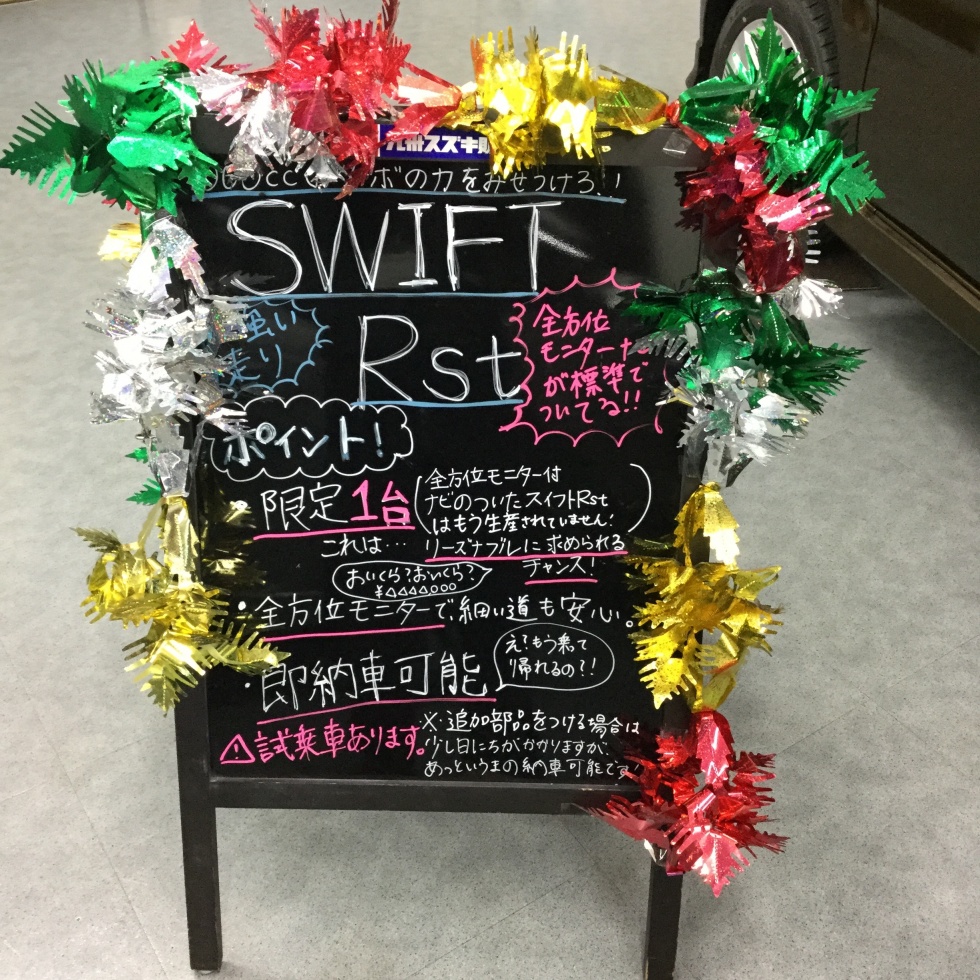 九州スズキ販
ボの力をみせつけろ!!
SWIFT
Rst
強い
走り
全方位
モニターナビ
が標準で
ついてる!!
ポイント!
・限定1台
全方位モニター付
ナビのついたスイフトRst
はもう生産されていません!
これは…リーズナブルに求められる
チャンス!
おいくら?おいくら?
¥△△△△○○○
・全方位モニターで、細い道も安心。
・即納車可能
え?もう乗って
帰れるの?!
⚠試乗車あります。
※追加部品をつける場合は
少し日にちがかかりますが、
あっというまの納車可能です!